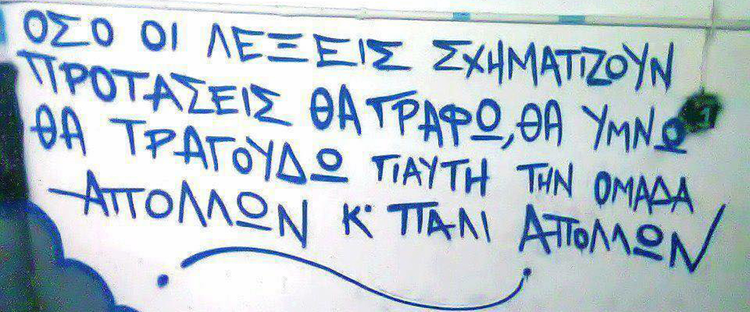 ΟΣΟ ΟΙ ΛΕΞΕΙΣ ΣΧΗΜΑΤΙΖΟΥΝ
ΠΡΟΤΑΣΕΙΣ ΘΑ ΓΡΑΦΩ, ΘΑ ΥΜΝΩ
ΘΑ ΤΡΑΓΟΥΔΩ ΓΙΑΥΤΗ ΤΗΝ ΟΜΑΔΑ
ΑΠΟΛΛΩΝ Κ' ΠΑΛΙ ΑΠΟΛΛΩΝ